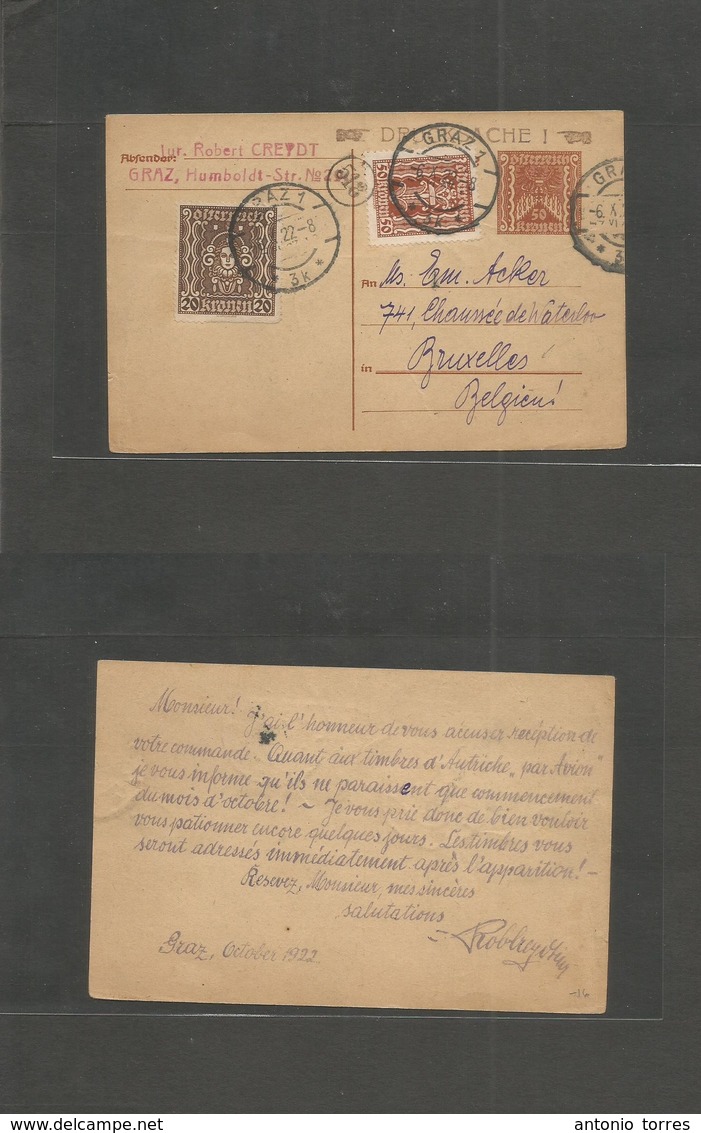 DRUCKSACHE !
Absender: Iur. Robert CREYDT
GRAZ, Humboldt-Str. No 29
GRAZ 1
22-8
* 3k *
GRAZ 1
* 3k *
GRAZ
-6. X.
* 3k
österreich
20 kronen 20
50 kronen 50
österreich
50
kronen
An Ms. Em. Acker
741, Chaussée de Waterloo
in Bruxelles
Belgien!
Monsieur! J'ai l'honneur de vous accuser recéption de
votre commande. Quant aux timbres d'Autriche „par Avion"
je vous informe qu'ils ne paraissent que commencement
du mois d'octobre! – Je vous prie donc de bien vouloir
vous pationner encore quelques jours. Les timbres vous
seront adressés immédiatement après l'apparition! –
Resevez, Monsieur, mes sincères
salutations
Graz, October 1922
antonio torres